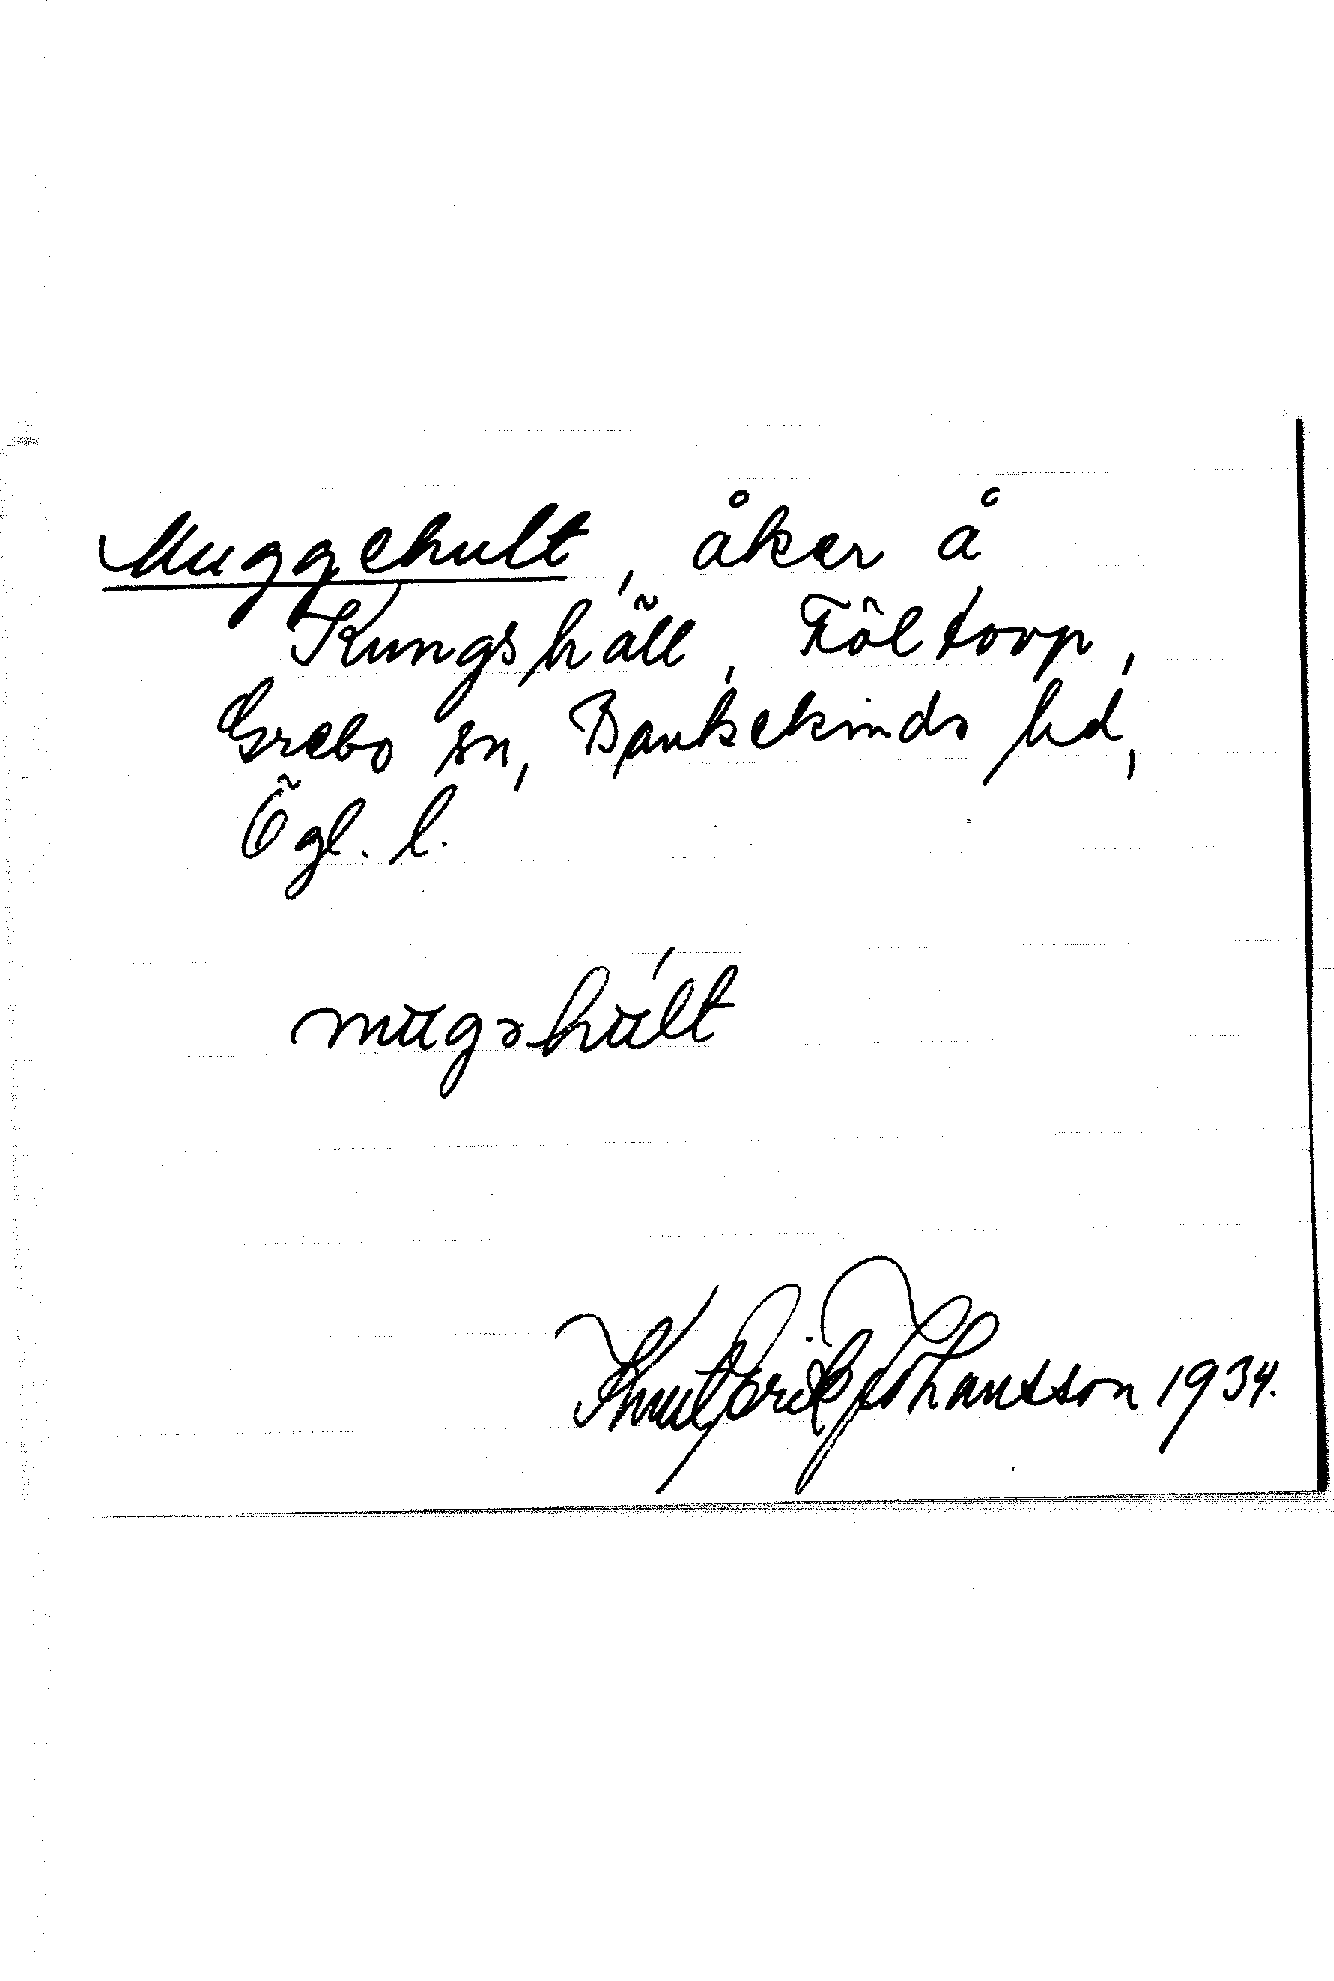 Muggehult, åker å
Kungshäll, Föltorp,
Grebo sn, Bankekinds hd,
Ögl. l.
mugəhúlt
Knut Erik Johansson 1934.